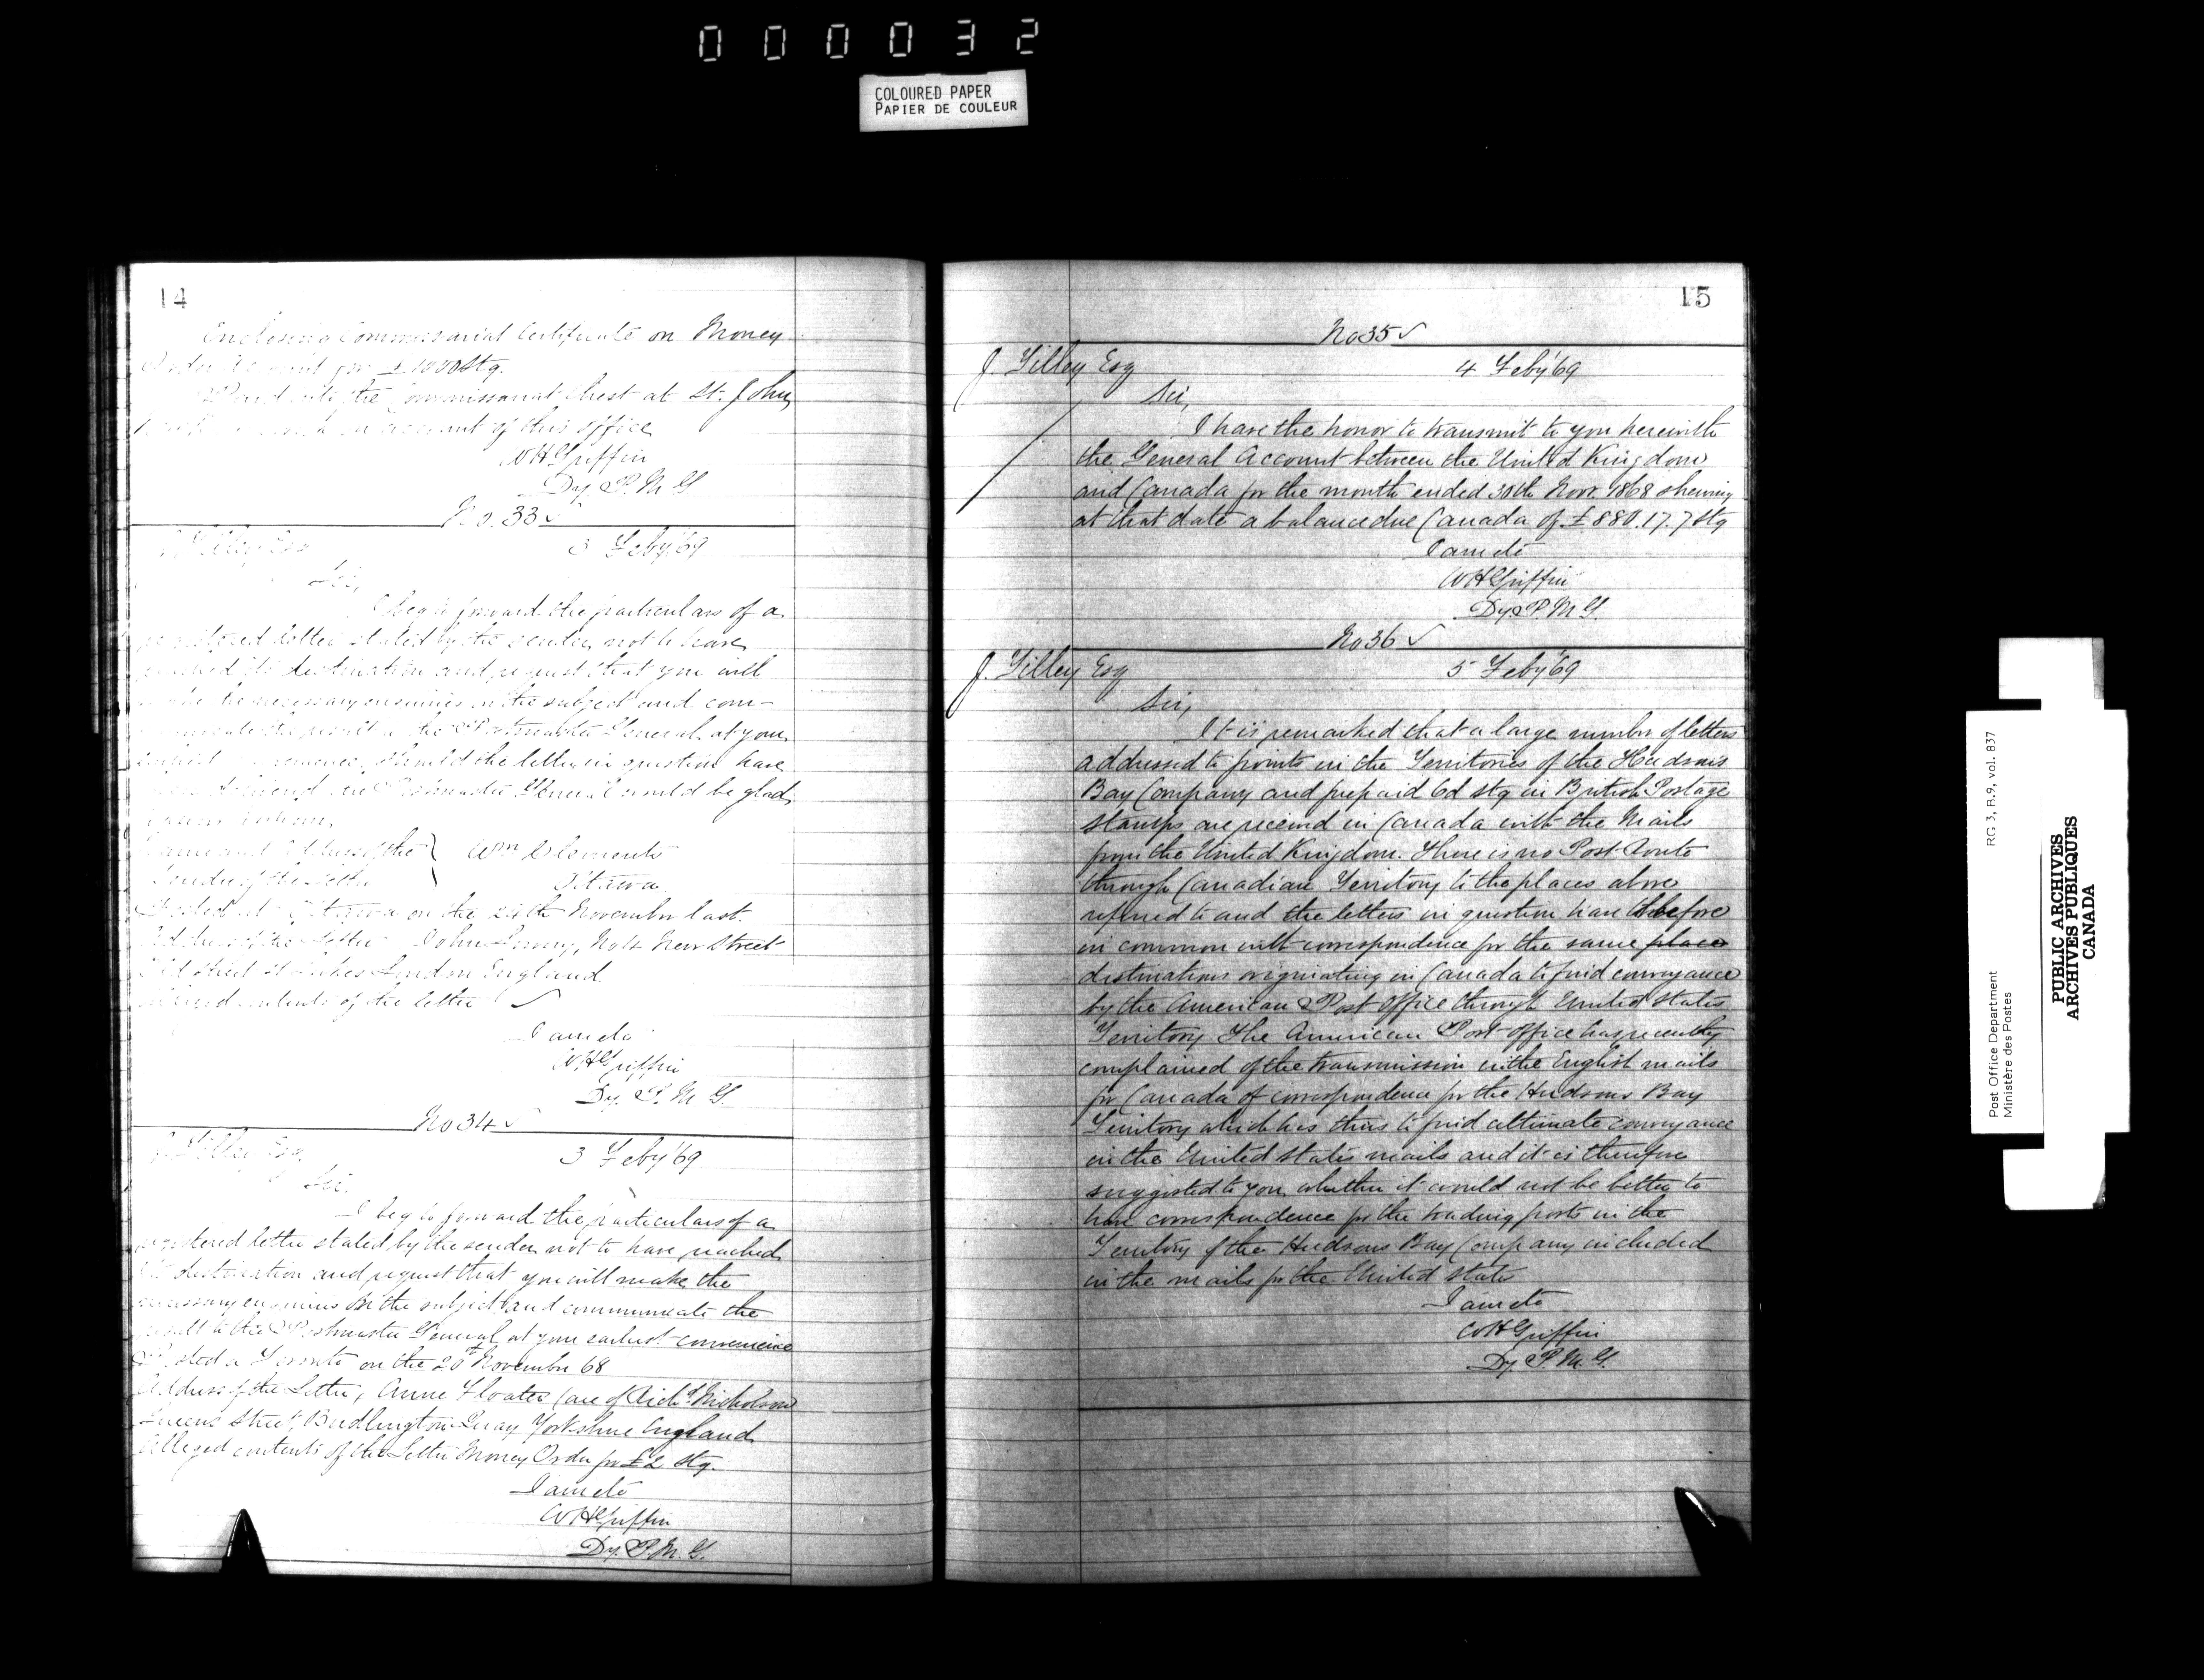 000032
COLOURED PAPER
PAPIER DE COULEUR
14
Enclosing Commissariat Certificate on Money
Order Account for £1000 Stg.
Paid into the Commissariat Chest at St. John
account of this office
WHGriffin
Dy. P.M.G
No. 33 ✓
Tilley Esq 3 Feby '69
Sir,
I beg to forward the particulars of a
registered letter stated by the sender not to have
reached its destination and request that you will
make the necessary enquiries on the subject and com-
municate the result to the Postmaster General at your
earliest convenience. Should the letter in question have
been delivered the Postmaster General would be glad
Name and Address of the } Wm Clements
Sender of the Letter } Ottawa
Posted at Ottawa on the 24th November last
Address of the Letter John , No 4 New Street
Old Street St Lukes London England
Alleged contents of the letter ✓
I am etc
WHGriffin
Dy. P.M.G.
No 34 ✓
J. Tilley Esq. 3 Feby '69
Sir.
I beg to forward the particulars of a
registered letter stated by the sender not to have reached
its destination and request that you will make the
necessary enquiries on the subject and communicate the
result to the Postmaster General at your earliest convenience
Posted at Toronto on the 20th November 68
Address of the Letter, Anne Floater Care of Richd Nicholson
Queens Street, Bridlington Quay Yorkshire England
Alleged contents of the Letter Money Order for £2 Stg.
I am etc
WHGriffin
Dy. P.M.G.
15
No 35 ✓
J. Tilley Esq 4 Feby '69
Sir,
I have the honor to transmit to you herewith
the General Account between the United Kingdom
and Canada for the month ended 30th Novr. 1868 shewing
at that date a balance due Canada of £880.17.7 Stg
I am etc
WHGriffin
Dy. P.M.G.
No 36 ✓
J. Tilley Esq 5 Feby '69
Sir,
It is remarked that a large number of letters
addressed to points in the Territories of the Hudsons
Bay Company and prepaid 6d stg in British Postage
stamps are received in Canada with the Mails
from the United Kingdom. There is no Post Route
through Canadian Territory to the places above
referred to and the letters in question have before
in common with correspondence for the same place
destinations originating in Canada to find conveyance
by the American Post Office through United States
Territory The American Post Office has recently
complained of the transmission in the English mails
for Canada of correspondence for the Hudsons Bay
Territory which has thus to find ultimate conveyance
in the United States mails and it is therefore
suggested to you whether it would not be better to
have correspondence for the trading posts in the
Territory of the Hudsons Bay Company included
in the mails for the United States
I am etc
WHGriffin
Dy. P.M.G.
Post Office Department RG 3, B.9, vol. 837
Ministère des Postes
PUBLIC ARCHIVES
ARCHIVES PUBLIQUES
CANADA